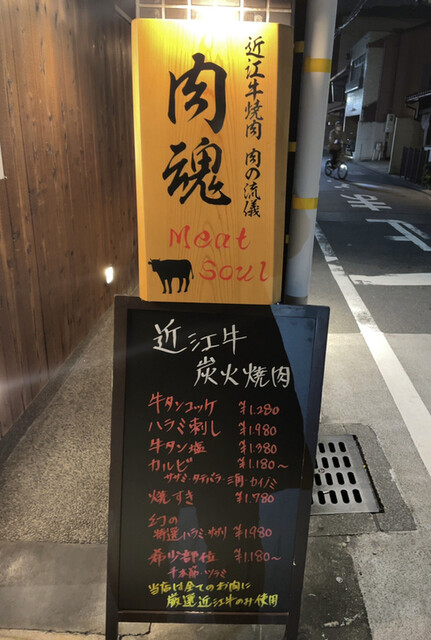 近江牛焼肉 肉の流儀
肉魂
Meat
Soul
近江牛
炭火焼肉
牛タンユッケ ¥1.280
ハラミ刺し ¥1.980
牛タン塩 ¥1.380
カルビ ¥1.180〜
ササミ・タテバラ・三角・カイノミ
焼すき ¥1.780
幻の
特選ハラミ ¥1.980
希少部位 ¥1.180〜
千本筋・ツラミ
当店は全てのお肉に
厳選近江牛のみ使用